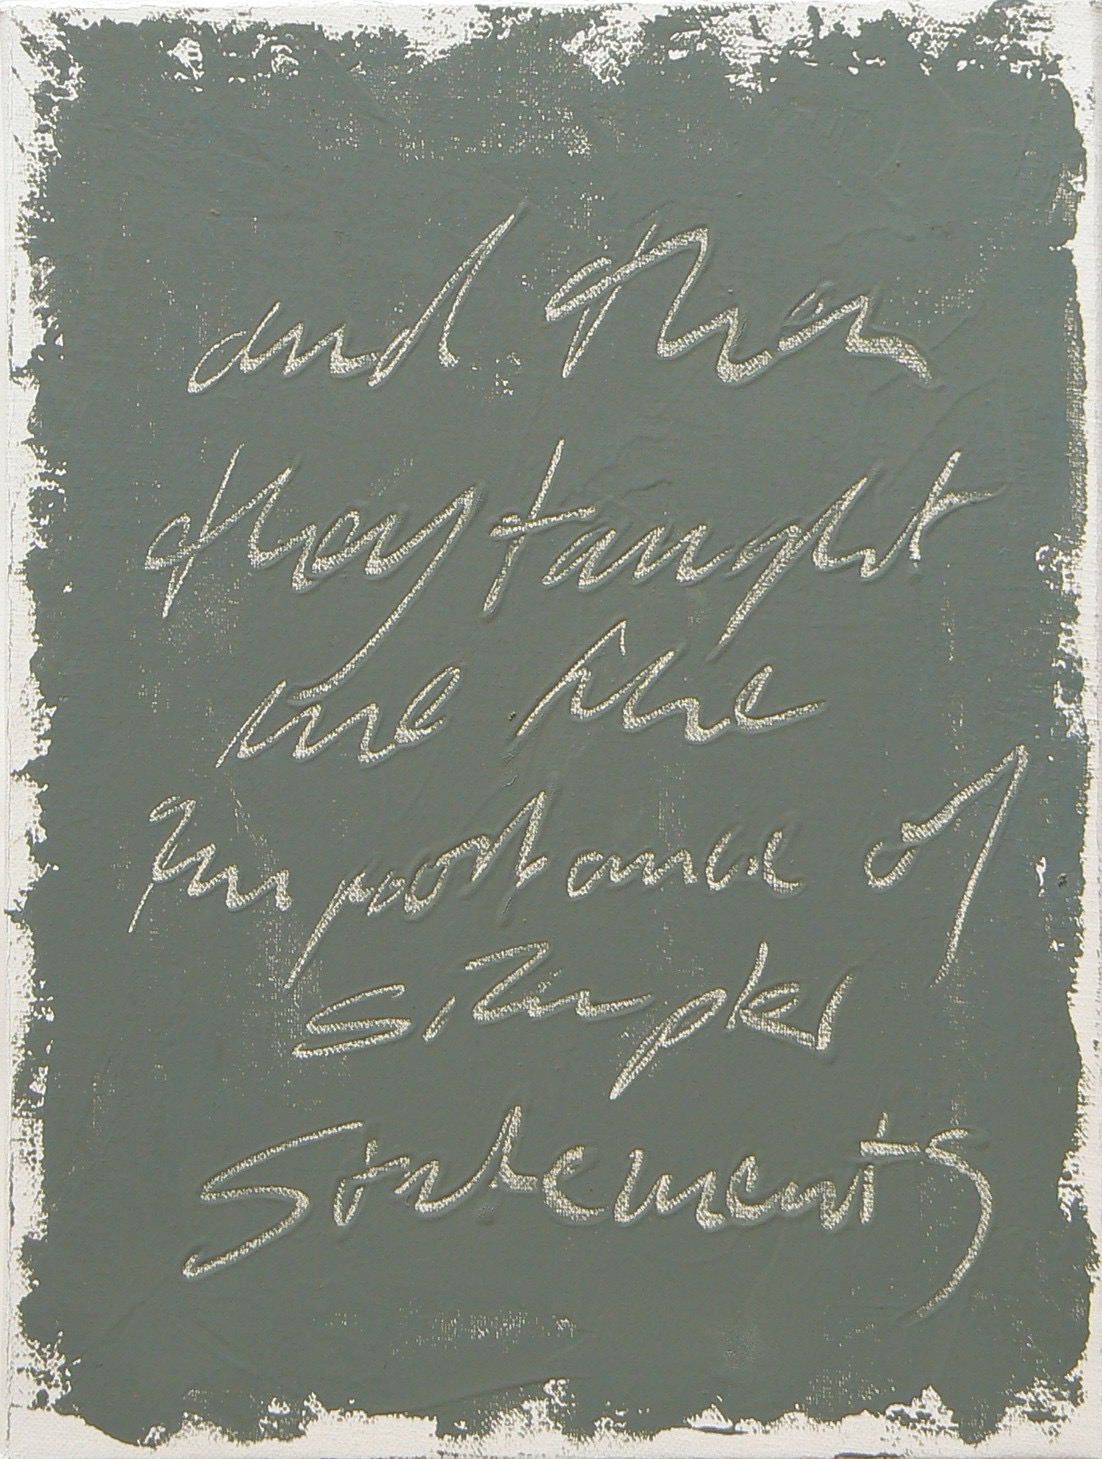 and then
they taught
me the
importance of
simpler
statements